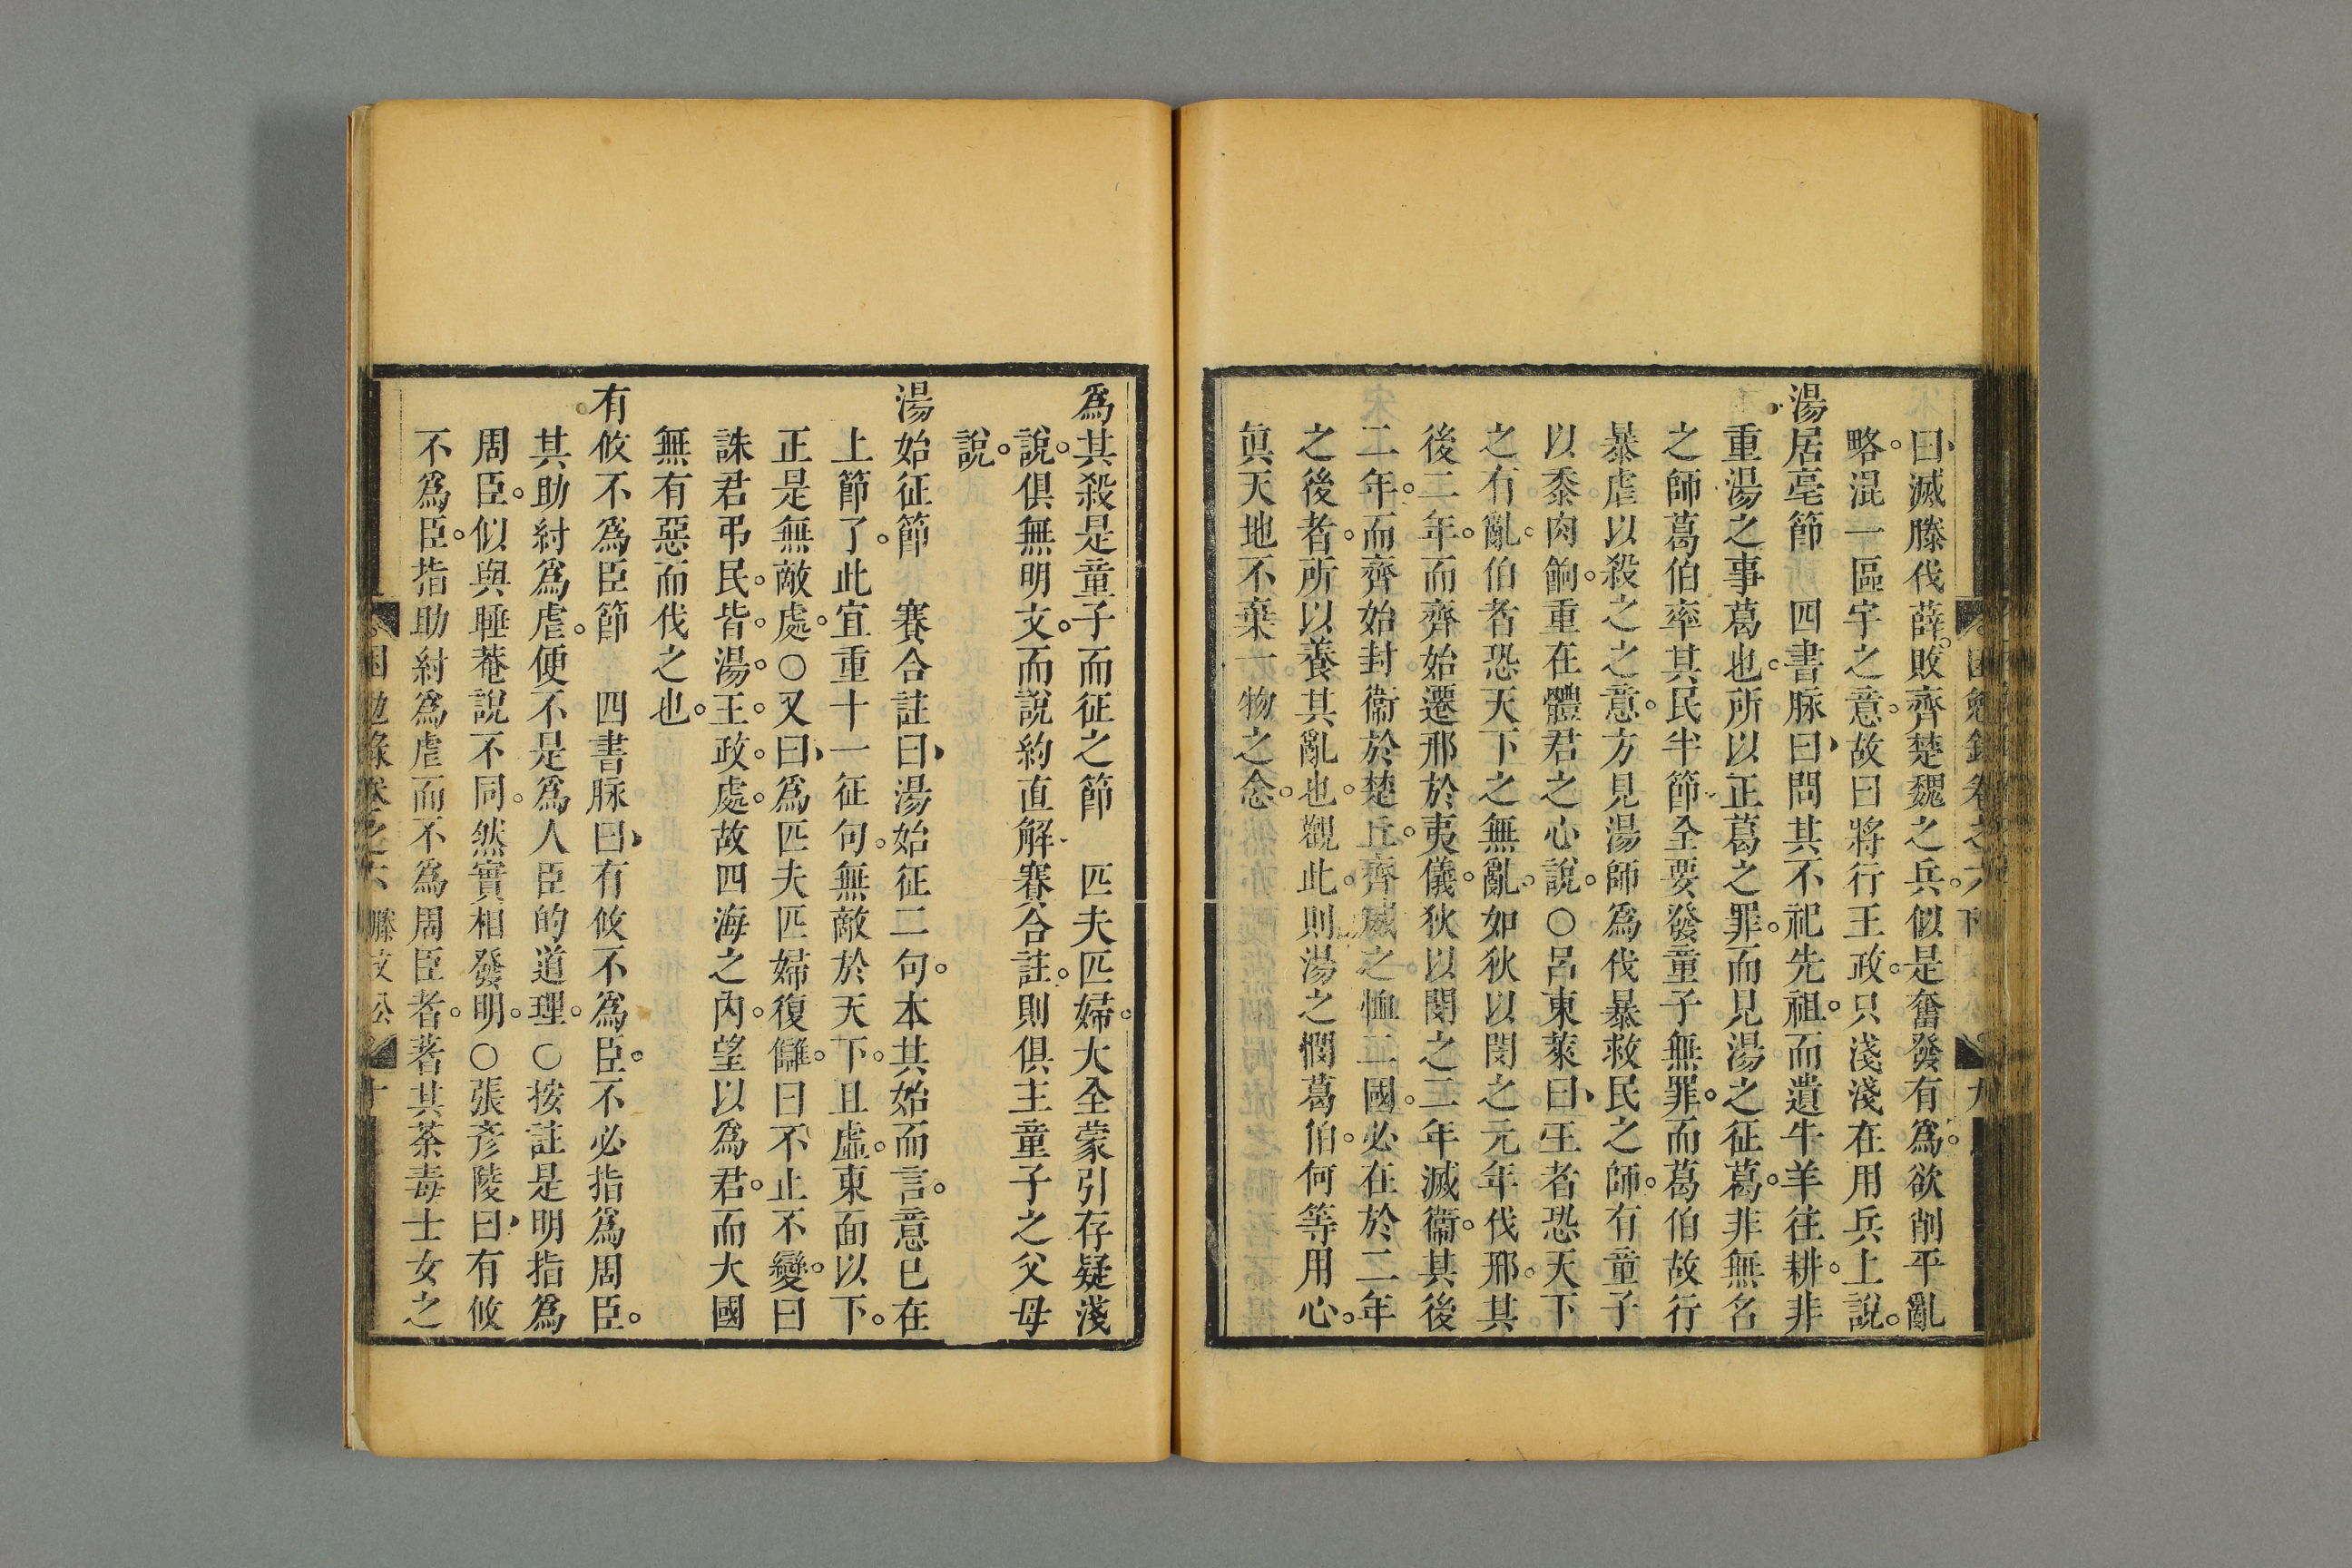 曰滅滕伐薛敗齊楚魏之兵似是奮發有為欲削平亂
略混一區宇之意故曰將行王政只淺淺在用兵上說
湯居亳節 四書脉曰問其不祀先祖而遺牛羊往耕非
重湯之事葛也所以正葛之罪而見湯之征葛非無名
之師葛伯率其民半節全要發童子無罪而葛伯故行
暴虐以殺之之意方見湯師為伐暴救民之師有童子
以黍肉餉重在體君之心說○呂東萊曰王者恐天下
之有亂伯者恐天下之無亂如狄以閔之元年伐邢其
後二年而齊始遷邢於夷儀狄以閔之二年滅衞其後
二年而齊始封衞於楚丘齊威之恤二國必在於二年
之後者所以養其亂也觀此則湯之憫葛伯何等用心
眞天地不棄一物之念
為其殺是童子而征之節 匹夫匹婦大全蒙引存疑淺
說俱無明文而說約直解賽合註則俱主童子之父母
說
湯始征節 賽合註曰湯始征二句本其始而言意已在
上節了此宜重十一征句無敵於天下且虛東面以下
正是無敵處○又曰為匹夫匹婦復讎曰不止不變曰
誅君弔民皆湯王政處故四海之內望以為君而大國
無有惡而伐之也
有攸不為臣節 四書脉曰有攸不為臣不必指為周臣
其助紂為虐便不是為人臣的道理○按註是明指為
周臣似與睡菴說不同然實相發明○張彥陵曰有攸
不為臣指助紂為虐而不為周臣者著其荼毒士女之
困勉錄卷之六 滕文公 十